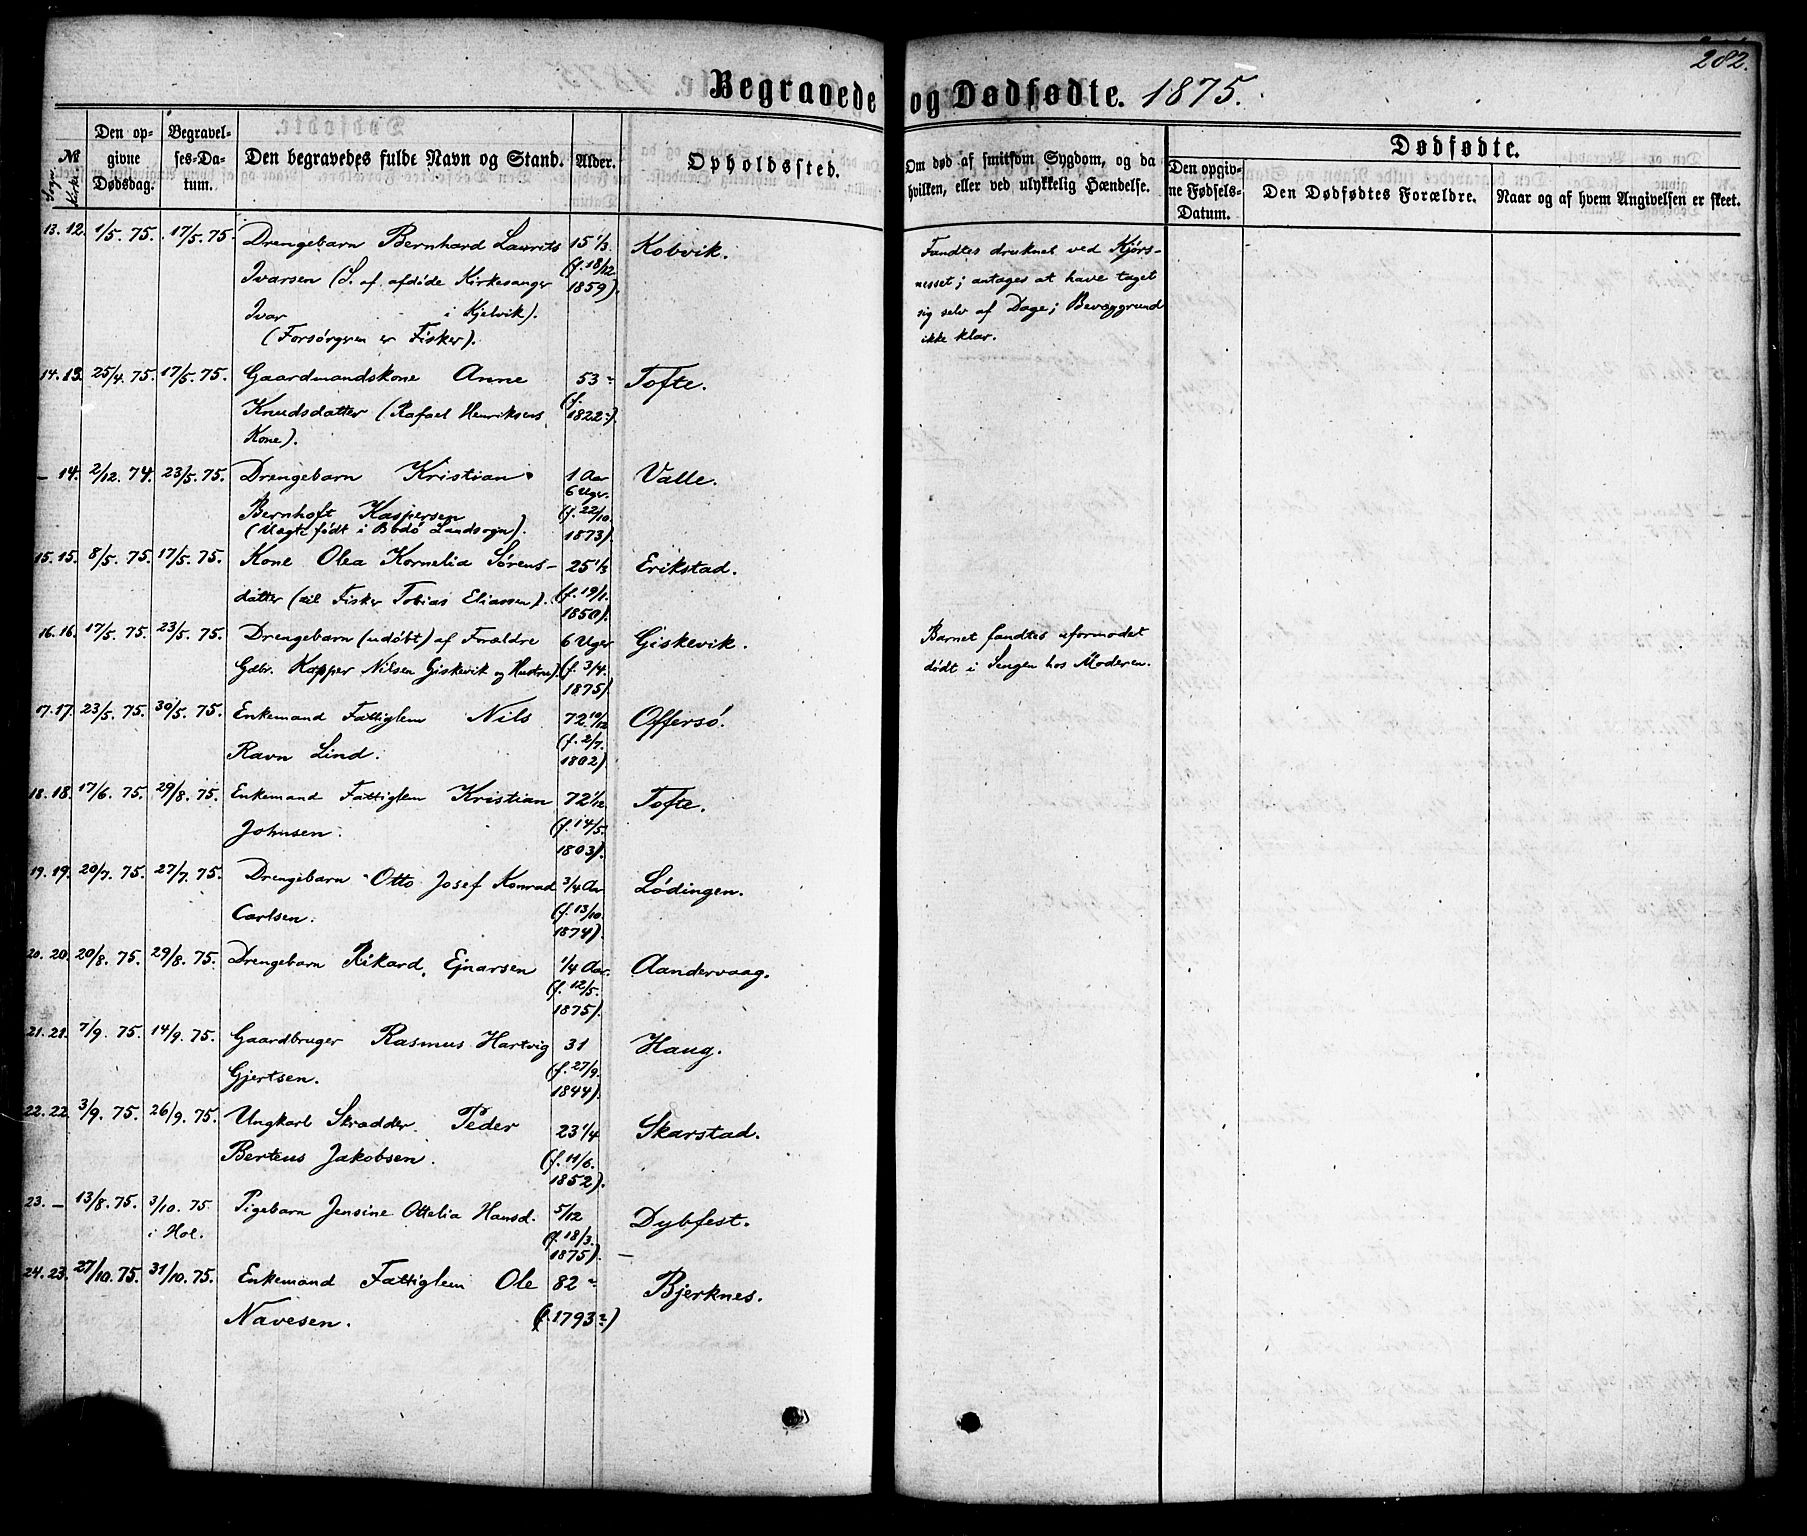 282.
Begravede og Dødfødte. 1875.
№ Sogn. Kirke
Den opgivne Dødsdag.
Begravelses-Datum.
Den begravedes fulde Navn og Stand.
Alder.
Opholdssted.
Om død af smitsom Sygdom, og da hvilken, eller ved ulykkelig Hændelse.
Dødfødte.
Den opgivne Fødsels-Datum.
Den Dødfødtes Forældre.
Naar og af hvem Angivelsen er skeet.
13. 12. 1/5. 75. 17/5. 75. Drengebarn Bernhard Laurits 15 1/3. Kobvik. Fandtes druknet ved Kjørs-
Ivarsen (S. af. afdøde Kirkesanger (f. 18/12 nesset; antages at have taget
Ivar i Kjelvik). 1859). sig selv af Dage; Bevæggrund
(Forsørgeren er Fisker). ikke klar.
14. 13. 25/4. 75. 17/5. 75. Gaardmandskone Anne 53 Tofte.
Knudsdatter (Rafael Henriksens (f. 1822?).
Kone).
– 14. 2/12. 74. 23/5. 75. Drengebarn Kristian 1 Aar Valle.
6 Uger.
Bernhoft Kaspersen (f. 22/10.
(Uægte født i Bodø Landsogn). 1873).
15. 15. 8/5. 75. 17/5. 75. Kone Olea Kornelia Sørens- 25 1/3 Erikstad.
datter (til Fisker Tobias Eliassen). (f. 19/1.
1850).
16. 16. 17/5. 75. 23/5. 75. Drengebarn (udøbt) af Forældre 6 Uger Giskevik. Barnet fandtes uformodet
Gdbr. Kasper Nilsen Giskevik og Hustru). (f. 3/4. dødt i Sengen hos Moderen.
1875).
17. 17. 23/5. 75. 30/5. 75. Enkemand Fattiglem Nils 72 10/12 Offersø.
Ravn Lind. (f. 2/7.
1802).
18. 18. 17/6. 75. 29/8. 75. Enkemand Fattiglem Kristian 72 1/12 Tofte.
Johnsen. (f. 14/5.
1803).
19. 19. 20/7. 75. 27/7. 75. Drengebarn Otto Josef Konrad 3/4 Aar Lødingen.
Carlsen. (f. 13/10.
1874).
20. 20. 20/8. 75. 29/8. 75. Drengebarn Rikard Ejnarsen 1/4 Aar. Aandervaag.
(f. 12/5.
1875).
21. 21. 7/9. 75. 14/9. 75. Gaardbruger Rasmus Hartvig 31 Haug.
Gjertsen. (f. 27/9.
1844).
22. 22. 3/9. 75. 26/9. 75. Ungkarl Skrædder Peder 23 1/4 Skarstad.
Berteus Jakobsen. (f. 11/6.
1852).
23. – 13/8. 75. 3/10. 75. Pigebarn Jensine Ottelia Hansd. 5/12 Dybfest.
i Hol. (f. 18/3.
1875).
24. 23. 27/10. 75. 31/10. 75. Enkemand Fattiglem Ole 82 Bjerknes.
Navesen. (f. 1793?)